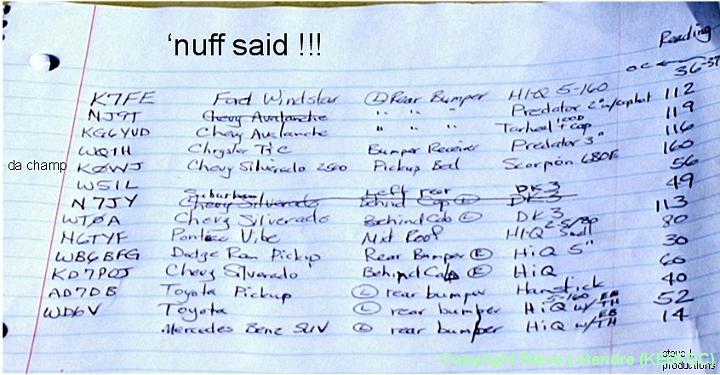 'nuff said !!!
Reading
oc 36-37
K7FE Ford Windstar (L) Rear Bumper HiQ 5-160 112
NJ9T Chevy Avalanche " " " Predator 2" w/caphat 119
KG6YUD Chevy Avalanche " " " Tarheel + cap 116
WQ1H Chrysler T&C Bumper Receiver Predator 3" 160
da champ K0WJ Chevy Silverado 2500 Pickup Bed Scorpion 680F 56
W5IL Suburban Left rear DK3 49
N7JY Chevy Silverado Behind Cab DK3 113
WT0A Chevy Silverado Behind Cab DK3 80
N6TYF Pontiac Vibe Mid Roof HiQ 2.5/80 Small 30
WB6BFG Dodge Ram Pickup Rear Bumper HiQ 5" 60
KD7POJ Chevy Silverado Behind Cab HiQ 40
AD7DB Toyota Pickup (L) rear bumper Hamstick 52
WD6V Toyota (L) rear bumper 5-160 HiQ w/ EB TH 14
Mercedes Benz SUV rear bumper HiQ w/ EB TH
Copyright Steve Latendre
steve l
productions